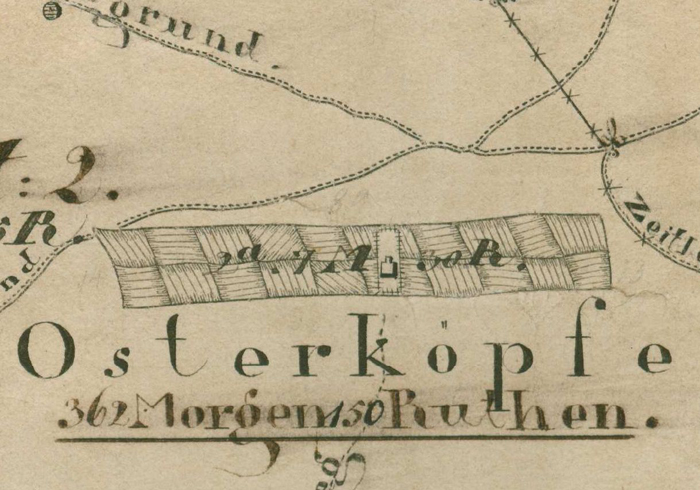 grund.
2.
R
nd
7 M 30 R.
Osterköpfe
362 Morgen 150 Ruthen.